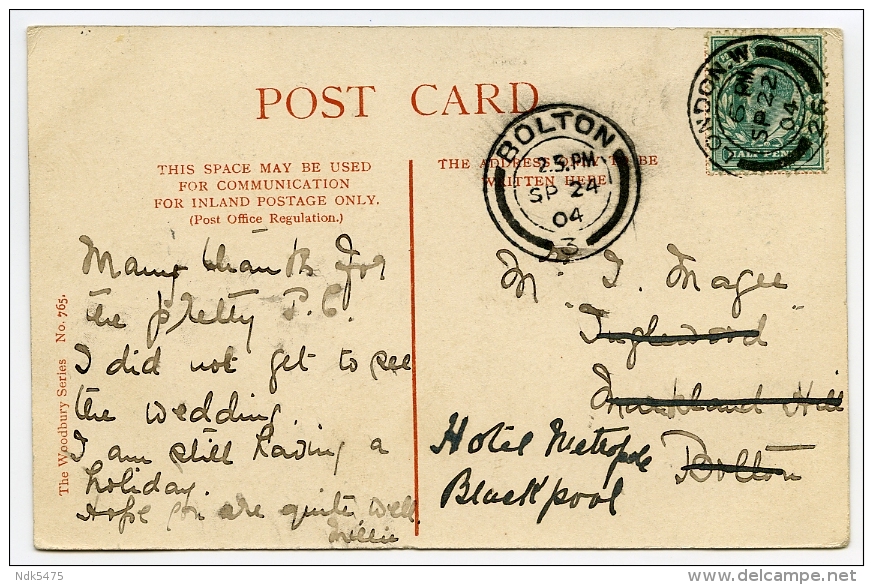 POST CARD
THIS SPACE MAY BE USED
FOR COMMUNICATION
FOR INLAND POSTAGE ONLY.
(Post Office Regulation.)
Many thanks for
the pretty P.C.
I did not get to see
the wedding.
I am still having a
holiday.
Hope you are quite well.
Millie
The Woodbury Series No. 765.
THE ADDRESS ONLY TO BE
WRITTEN HERE
BOLTON
2.5.PM
SP 24
04
3
LONDON.W
6 PM
SP 22
04
26
HALFPENNY
M. J. Magee
"Inglewood"
Markland Hill
Bolton
Hotel Metropole
Blackpool
Ndk5475
www.delcampe.net